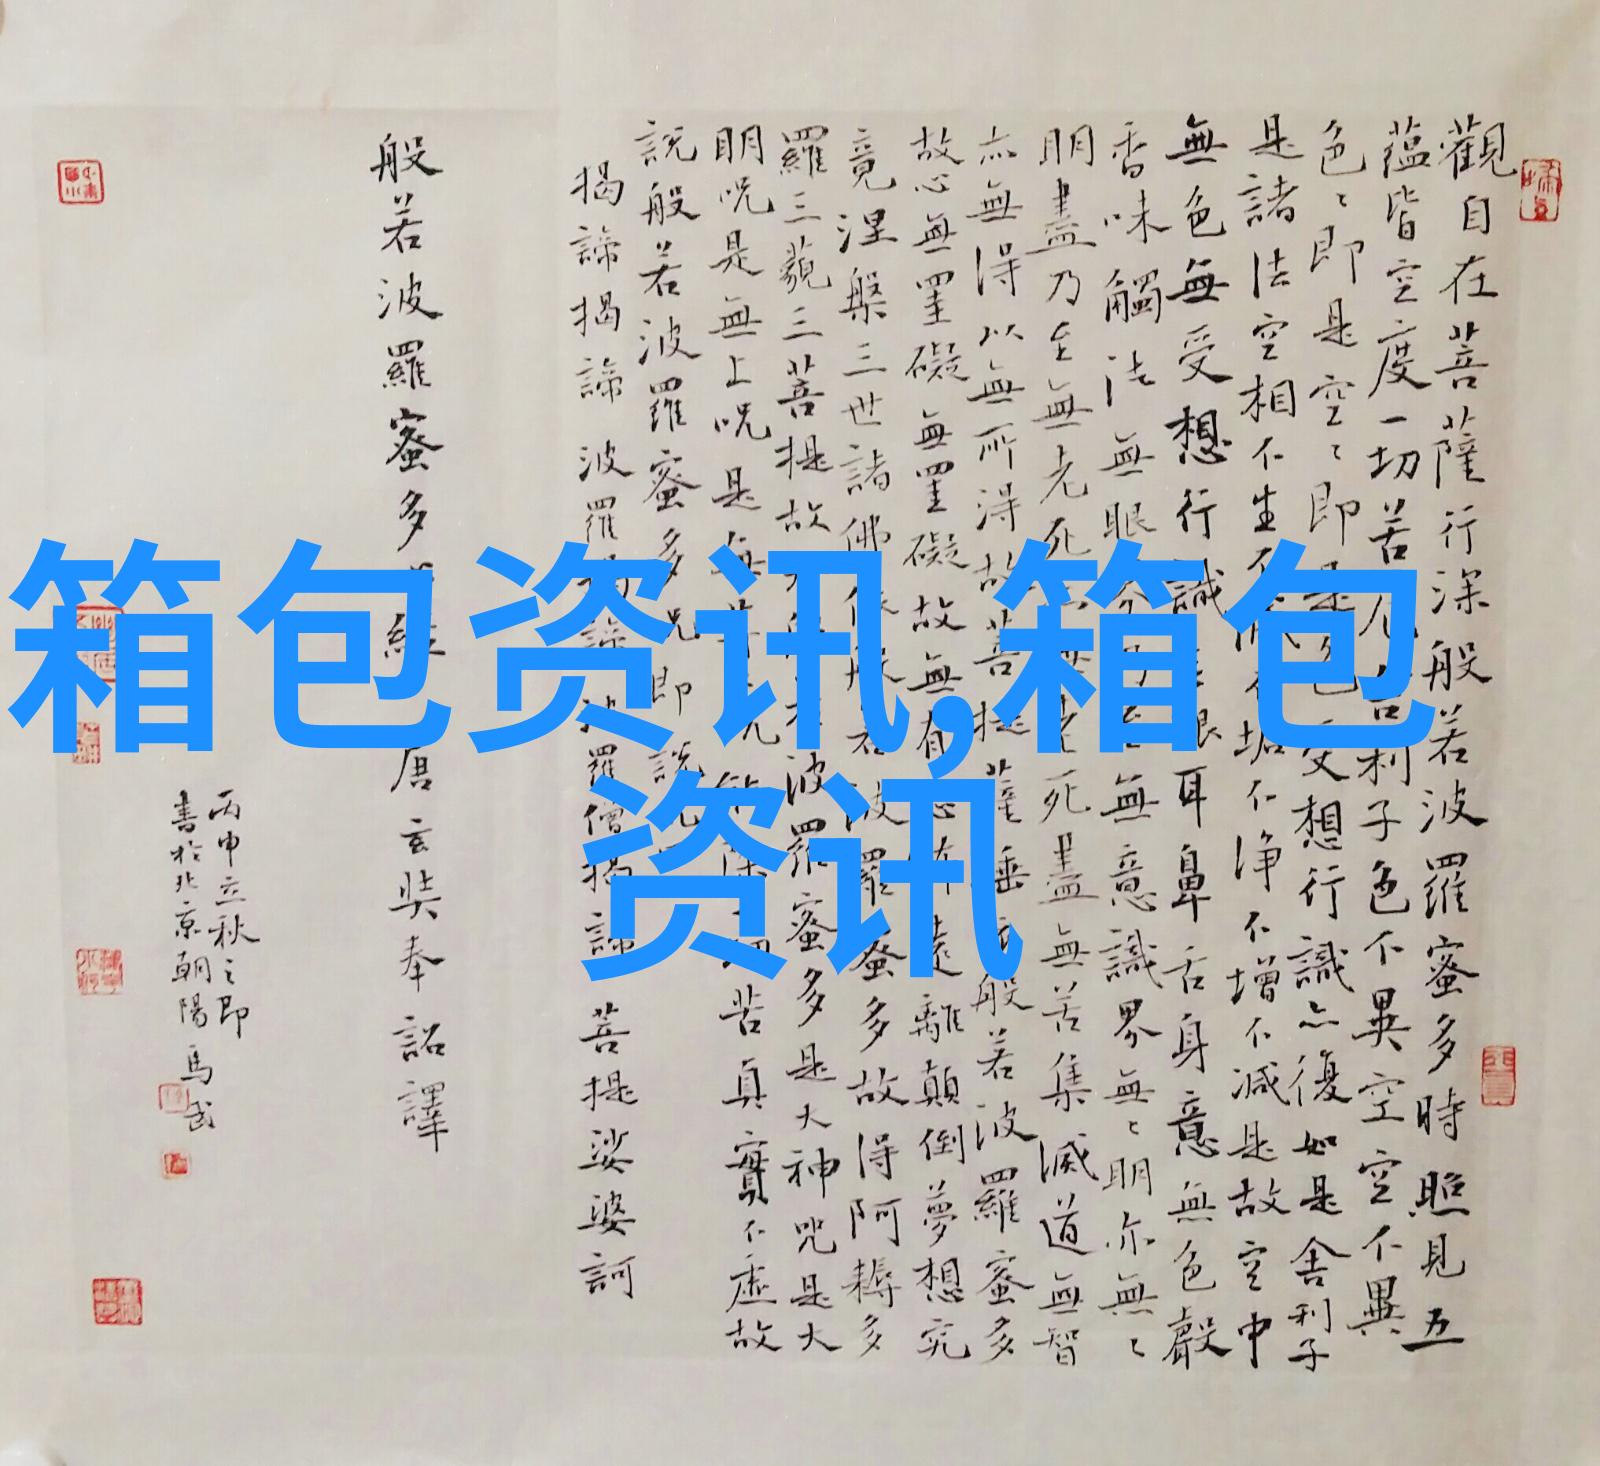 觀自在菩薩行深般若波羅蜜多時照見五
蘊皆空度一切苦厄舍利子色不異空空不異
色〻即是空〻即是色受想行識亦復如是舍利子
是諸法空相不生不滅不垢不淨不增不減是故空中
無色無受想行識無眼耳鼻舌身意無色聲
香味觸法無眼界乃至無意識界無〻明亦無〻
明盡乃至無老死亦無老死盡無苦集滅道無智
亦無得以無所得故菩提薩埵依般若波羅蜜多
故心無罣礙無罣礙故無有恐怖遠離顛倒夢想究
竟涅槃三世諸佛依般若波羅蜜多故得阿耨多
羅三藐三菩提故知般若波羅蜜多是大神咒是大
明咒是無上咒是無等等咒能除一切苦真實不虛故
說般若波羅蜜多咒即說咒曰
揭諦揭諦 波羅揭諦 波羅僧揭諦 菩提娑婆訶
般若波羅蜜多心經 唐玄奘奉詔譯
丙申立秋之即
書於北京朝陽 馬武
箱包资讯,箱包
资讯